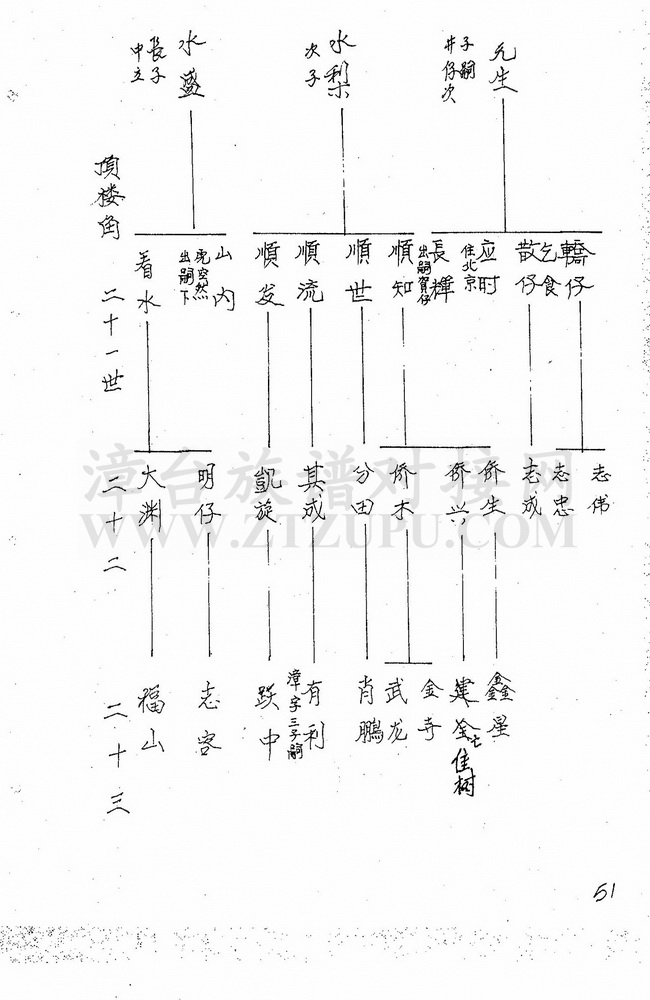 允生
子嗣
井仔次
水梨
次子
水盛
長子
中立
頂楼角
二十一世
轎仔
乞食
散仔
应时
住北京
長樺
出嗣賀仔
順知
順世
順流
順发
山内
出嗣下
着水
二十二
志伟
志忠
志成
侨生
侨兴
侨木
分田
其成
凱旋
明仔
大渊
二十三
鑫星
建全
佳树
金寺
武龙
肖鵬
有利
漳字三子嗣
跃中
志客
福山
漳台族谱对接网
WWW.ZTZUPU.COM
51